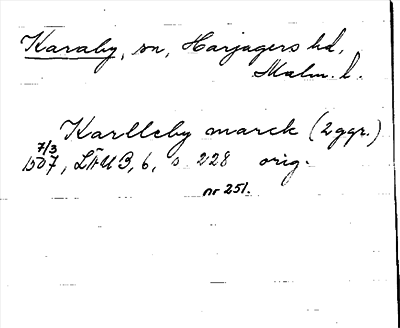 Karaby, sn, Harjagers hd,
Malm. l.
Karlleby marck (2 ggr.)
7/3
1507, LÄUB, 6, s 228 orig.
nr 251.